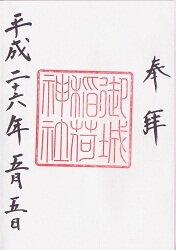 奉拝
御城
稲荷
神社
平成二十六年五月五日